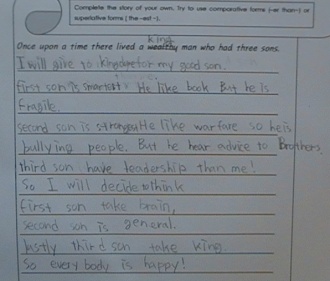 Complete the story of your own. Try to use comparative forms (-er than-) or
superlative forms [ the -est -].
king
Once upon a time there lived a wealthy man who had three sons.
I will give to kingdom for my good son.
first son is smartest. He like book But he is
fragile.
second son is strongest He like warfare so he is
bullying people. But he hear advice to Brothers,
third son have leadership than me!
So I will decide to think
first son take brain,
second son is general.
lastly third son take king.
So every body is happy!